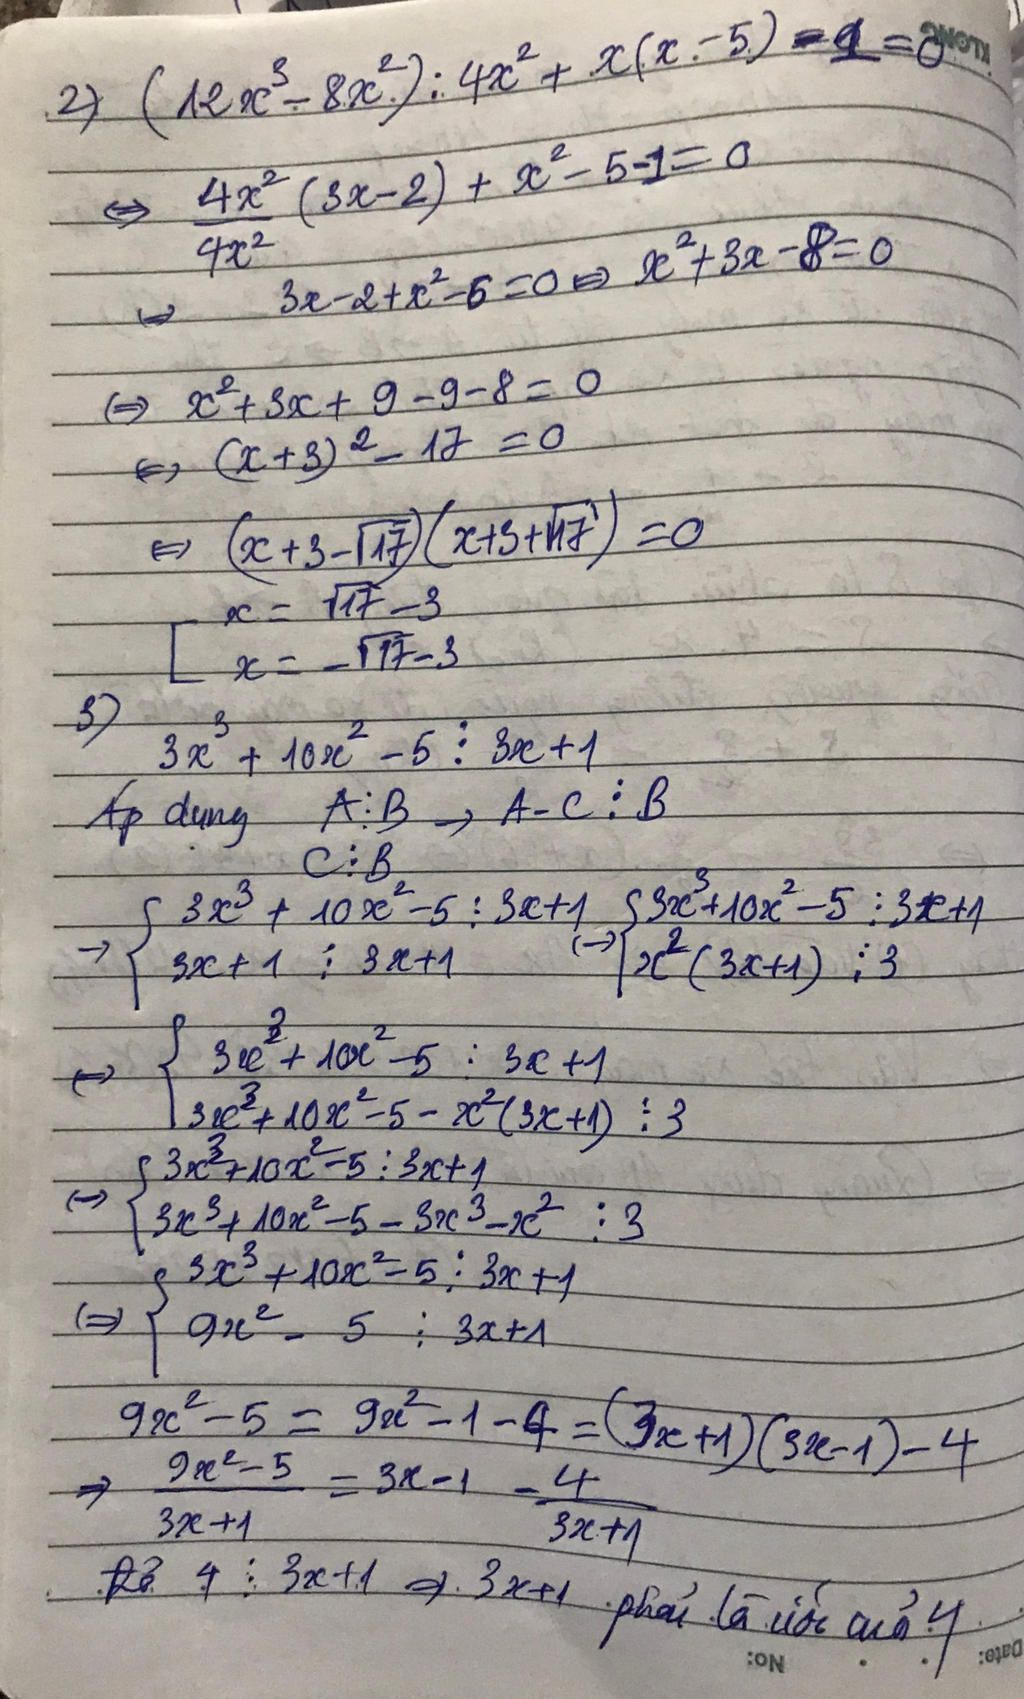 KLONG
2) (12x³ - 8x²) : 4x² + x(x - 5) - 1 = 0
⇔ 4x²/4x² (3x - 2) + x² - 5 - 1 = 0
⇔ 3x - 2 + x² - 6 = 0 ⇔ x² + 3x - 8 = 0
⇔ x² + 3x + 9 - 9 - 8 = 0
⇔ (x + 3)² - 17 = 0
⇔ (x + 3 - √17)(x + 3 + √17) = 0
[ x = √17 - 3
x = -√17 - 3
3)
3x³ + 10x² - 5 ⋮ 3x + 1
Áp dụng A ⋮ B → A - C ⋮ B
C ⋮ B
→ { 3x³ + 10x² - 5 ⋮ 3x + 1 { 3x³ + 10x² - 5 ⋮ 3x + 1
3x + 1 ⋮ 3x + 1 ⇔ x²(3x + 1) ⋮ 3
⇔ { 3x³ + 10x² - 5 ⋮ 3x + 1
3x³ + 10x² - 5 - x²(3x + 1) ⋮ 3
⇔ { 3x³ + 10x² - 5 ⋮ 3x + 1
3x³ + 10x² - 5 - 3x³ - x² ⋮ 3
⇔ { 3x³ + 10x² - 5 ⋮ 3x + 1
9x² - 5 ⋮ 3x + 1
9x² - 5 = 9x² - 1 - 4 = (3x + 1)(3x - 1) - 4
⇒ (9x² - 5)/(3x + 1) = 3x - 1 - 4/(3x + 1)
Để 4 ⋮ 3x + 1 ⇒ 3x + 1 phải là ước của 4
No: Date: